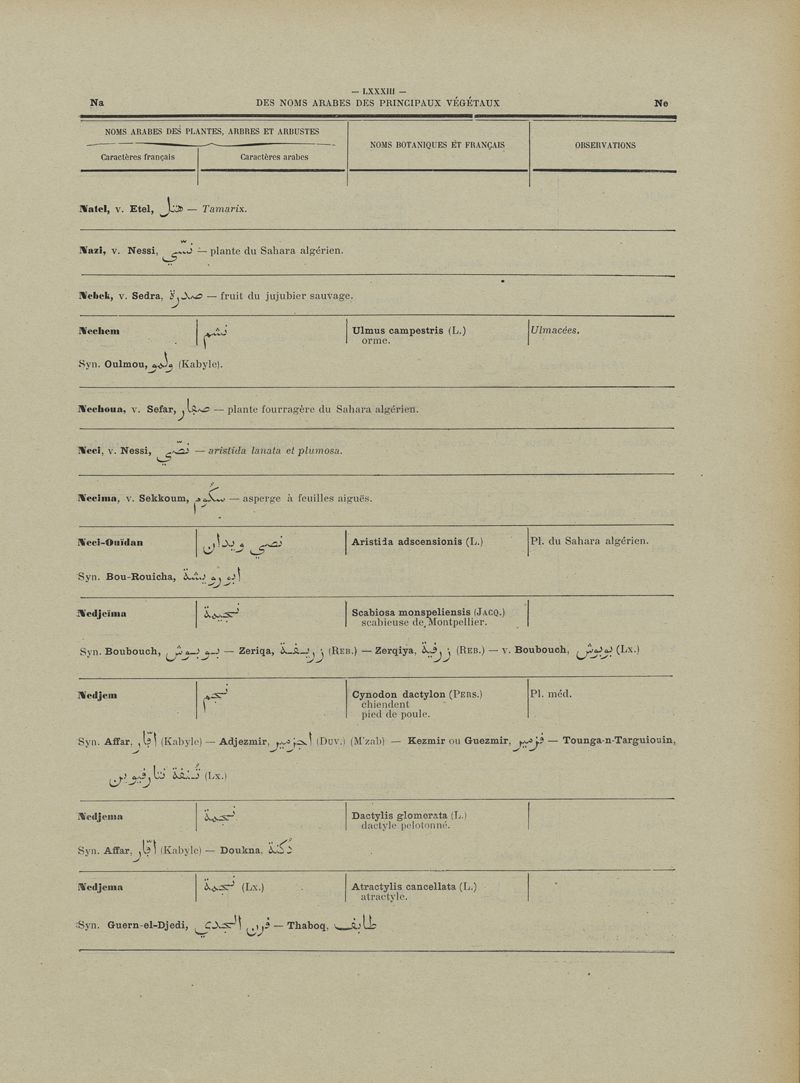 — LXXXIII —
Na DES NOMS ARABES DES PRINCIPAUX VÉGÉTAUX Ne
NOMS ARABES DES PLANTES, ARBRES ET ARBUSTES
NOMS BOTANIQUES ET FRANÇAIS
OBSERVATIONS
Caractères français
Caractères arabes
Natel, v. Etel, — Tamarix.
Nazi, v. Nessi, — plante du Sahara algérien.
Nebek, v. Sedra, — fruit du jujubier sauvage.
Nechem نشم Ulmus campestris (L.) Ulmacées.
orme.
Syn. Oulmou, (Kabyle).
Nechoua, v. Sefar, صفار — plante fourragère du Sahara algérien.
Neci, v. Nessi, — aristida lanata et plumosa.
Necima, v. Sekkoum, — asperge à feuilles aiguës.
Neci-Ouïdan Aristida adscensionis (L.) Pl. du Sahara algérien.
Syn. Bou-Rouicha,
Nedjeïma Scabiosa monspeliensis (JACQ.)
scabieuse de Montpellier.
Syn. Boubouch, — Zeriqa, (REB.) — Zerqiya, (REB.) — v. Boubouch, (LX.)
Nedjem نجم Cynodon dactylon (PERS.) Pl. méd.
chiendent
pied de poule.
Syn. Affar, (Kabyle) — Adjezmir, (DUV.) (M'zab) — Kezmir ou Guezmir, — Tounga-n-Targuiouin,
(LX.)
Nedjema نجمة Dactylis glomerata (L.)
dactyle pelotonné.
Syn. Affar, (Kabyle) — Doukna,
Nedjema نجمة (LX.) Atractylis cancellata (L.)
atractyle.
Syn. Guern-el-Djedi, — Thaboq,